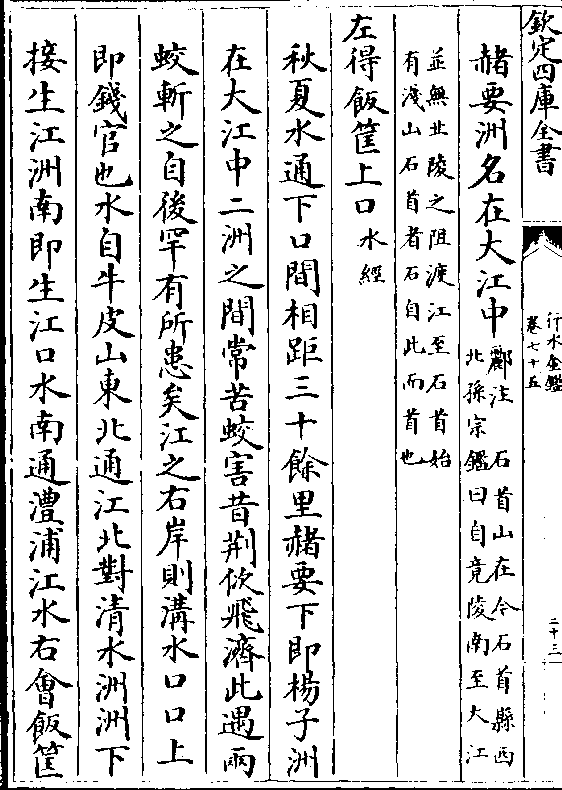 欽定四庫全書
行水金鑑
卷七十五
二十三
赭要洲名在大江中酈注 石首山在今石首縣西
北孫宗鑑曰自竟陵南至大江
並無北陵之阻渡江至石首始
有淺山石首者石自此而首也
左得飯筐上口水經
秋夏水通下口間相距三十餘里赭要下即楊子洲
在大江中二洲之間常苦蛟害昔荆佽飛濟此遇兩
蛟斬之自後罕有所患矣江之右岸則溝水口口上
即錢官也水自牛皮山東北通江北對清水洲洲下
接生江洲南即生江口水南通澧浦江水右會飯筐